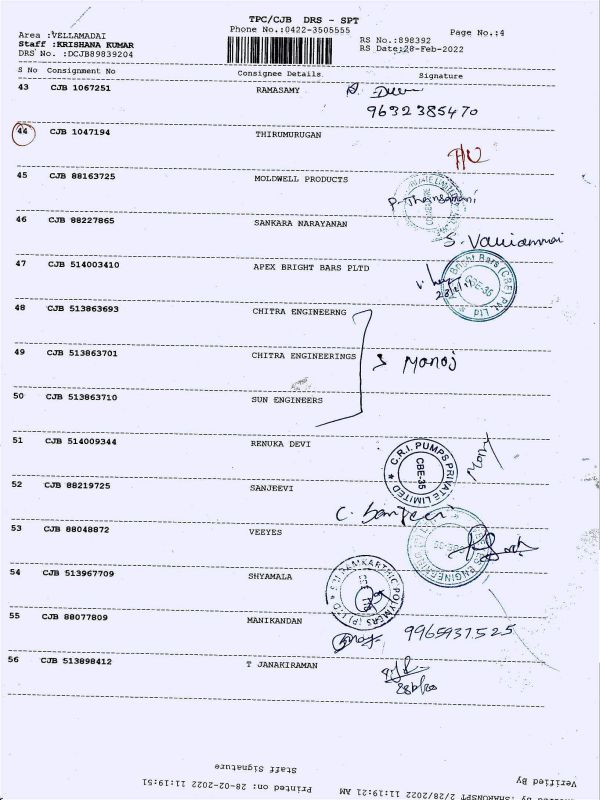 TPC/CJB DRS - SPT
Phone No.:0422-3505555
Page No.:4
Area :VELLAMADAI
Staff :KRISHANA KUMAR
DRS No. :DCJB89839204
RS No.:898392
RS Date:28-Feb-2022
S No Consignment No Consignee Details. Signature
43 CJB 1067251 RAMASAMY
9632385470
44 CJB 1047194 THIRUMURUGAN
45 CJB 88163725 MOLDWELL PRODUCTS
46 CJB 88227865 SANKARA NARAYANAN
47 CJB 514003410 APEX BRIGHT BARS PLTD
Bright Bars (CBE) Pvt. Ltd
CBE-35
48 CJB 513863693 CHITRA ENGINEERNG
49 CJB 513863701 CHITRA ENGINEERINGS Manoj
50 CJB 513863710 SUN ENGINEERS
51 CJB 514009344 RENUKA DEVI
C.R.I. PUMPS PRIVATE LIMITED
CBE-35
52 CJB 88219725 SANJEEVI
53 CJB 88048872 VEEYES
54 CJB 513967709 SHYAMALA
55 CJB 88077809 MANIKANDAN
9965937525
56 CJB 513898412 T JANAKIRAMAN
Staff Signature
Verified By
Printed on: 28-02-2022 11:19:51
2/28/2022 11:19:21 AM